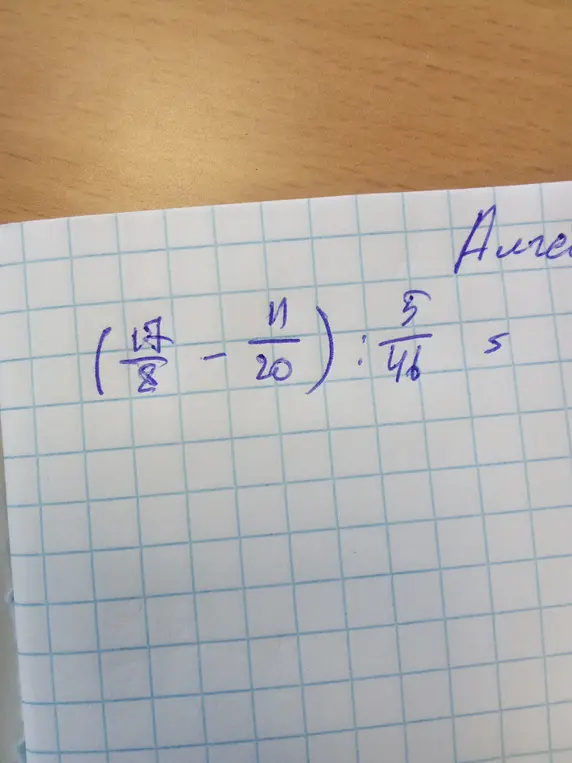 Алге
(17/8 - 11/20) : 5/46 =